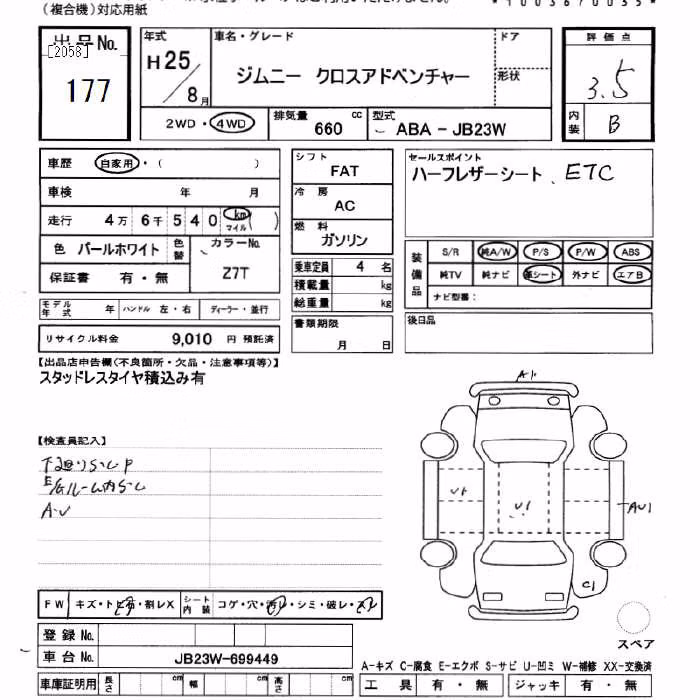 (複合機)対応用紙
*1003670035*
出品No.
[2058]
177
年式
H25
8月
車名・グレード
ジムニー クロスアドベンチャー
ドア
形状
2WD・4WD
排気量
660 cc
型式
ABA-JB23W
評価点
3.5
内装
B
車歴 自家用・( )
車検 年 月
走行 4万6千540 km マイル ( )
色 パールホワイト 色替
カラーNo.
Z7T
保証書 有・無
モデル年式 年 ハンドル 左・右 ディーラー・並行
リサイクル料金 9,010 円 預託済
シフト
FAT
冷房
AC
燃料
ガソリン
乗車定員 4 名
積載量 kg
総重量 kg
書類期限
月 日
セールスポイント
ハーフレザーシート、ETC
装備品
S/R 純A/W P/S P/W ABS
純TV 純ナビ 革シート 外ナビ エアB
ナビ型番:
後日品
【出品店申告欄(不良箇所・欠品・注意事項等)】
スタッドレスタイヤ積込み有
【検査員記入】
下廻りS・C P
E/Gルーム内S・C
A・U
A1
U1
U1
AU1
C1
スペア
FW キズ・トビ石・割レX
シート内装 コゲ・穴・汚レ・シミ・破レ・スレ
登録No.
車台No. JB23W-699449
車庫証明用 長さ cm 幅 cm 高さ cm
A-キズ C-腐食 E-エクボ S-サビ U-凹ミ W-補修 XX-交換済
工具 有・無 ジャッキ 有・無